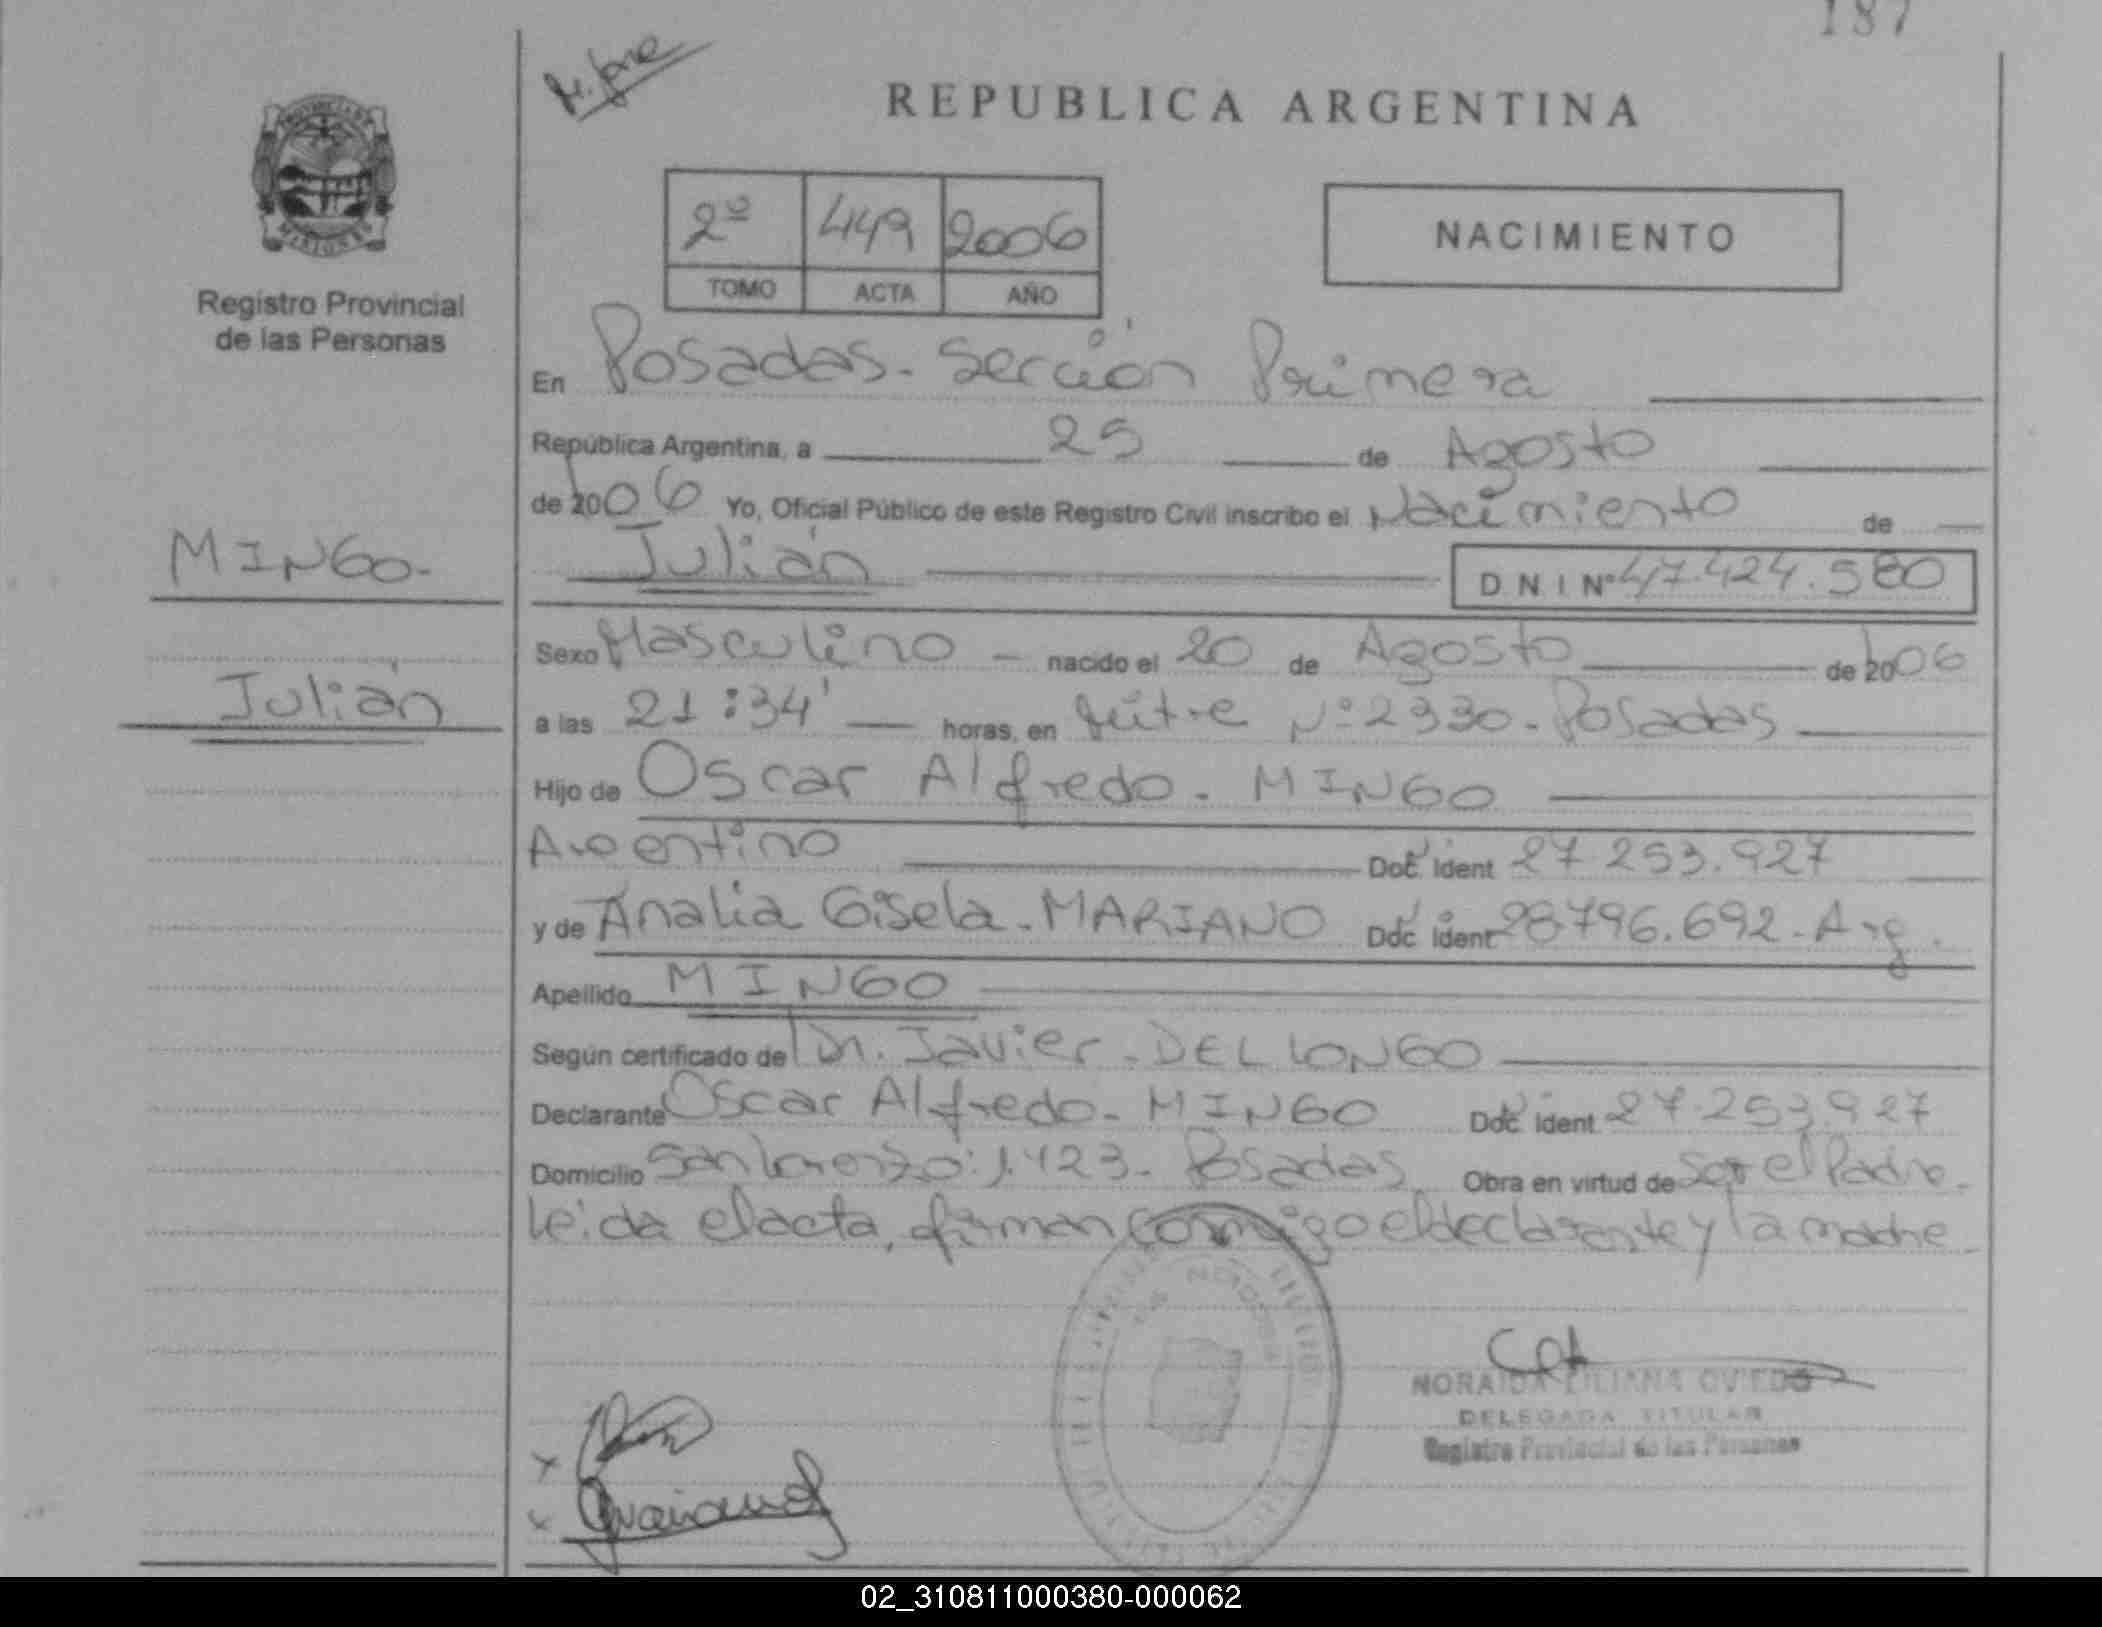 187
REPUBLICA ARGENTINA
PROVINCIA DE
MISIONES
Registro Provincial
de las Personas
2º 449 2006
TOMO ACTA AÑO
NACIMIENTO
En Posadas - Sección Primera
República Argentina, a 25 de Agosto
de 2006 Yo, Oficial Público de este Registro Civil inscribo el Nacimiento de
MINGO-
Julián
D N I Nº 47.424.580
Sexo Masculino - nacido el 20 de Agosto de 2006
Julián
a las 21:34' horas, en Mitre Nº 2330 - Posadas
Hijo de Oscar Alfredo - MINGO
Argentino Doc Ident 27.253.927
y de Analia Gisela - MARIANO Doc Ident 28796.692 - Arg.
Apellido MINGO
Según certificado de Dr. Javier - DEL LONGO
Declarante Oscar Alfredo - MINGO Doc Ident 27.253.927
Domicilio San Lorenzo: 1423 - Posadas Obra en virtud de ser el Padre -
Leida el acta, firman conmigo el declarante y la madre -
NORAIDA LILIANA OVIEDO
DELEGADA TITULAR
Registro Provincial de las Personas
02_310811000380-000062